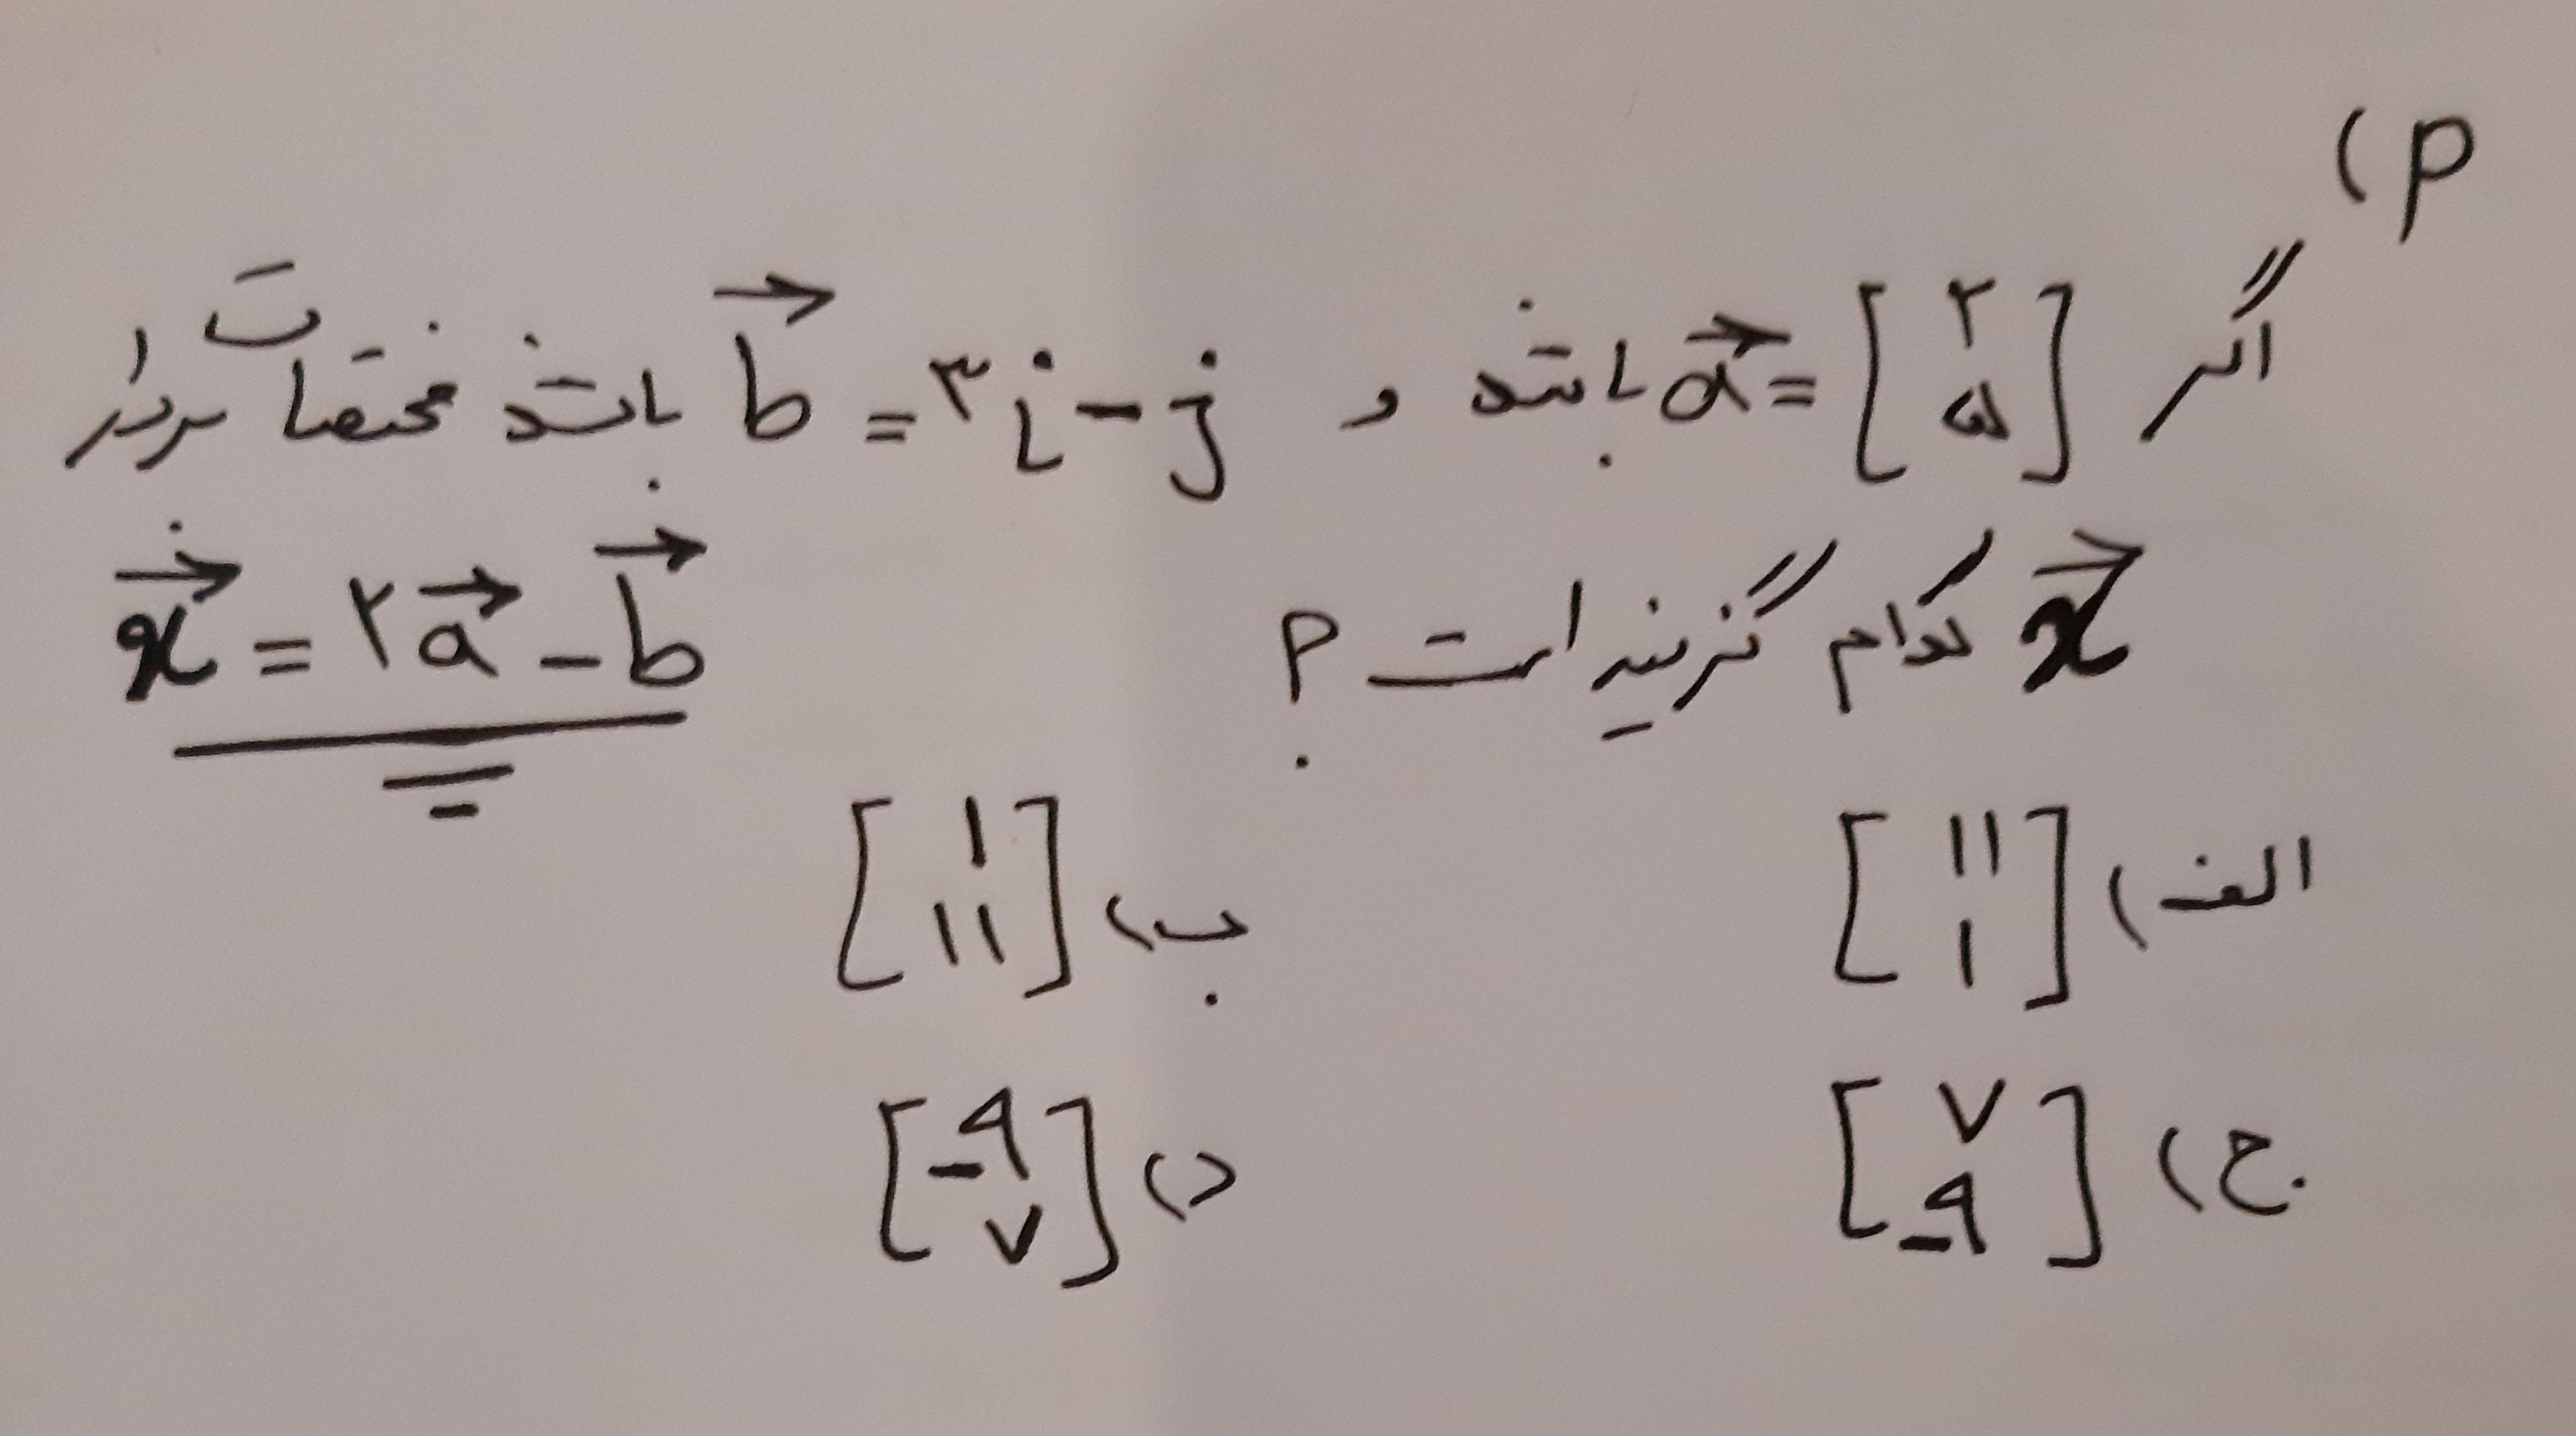 ۴)
اگر [۲ ۵] = a⃗ باشد و b⃗ = ۳i - j باشد مختصات بردار
x⃗ کدام گزینه است ؟ x⃗ = ۲a⃗ - b⃗
الف) [۱۱ ۱] ب) [۱ ۱۱]
ج) [۷ -۹] د) [-۹ ۷]